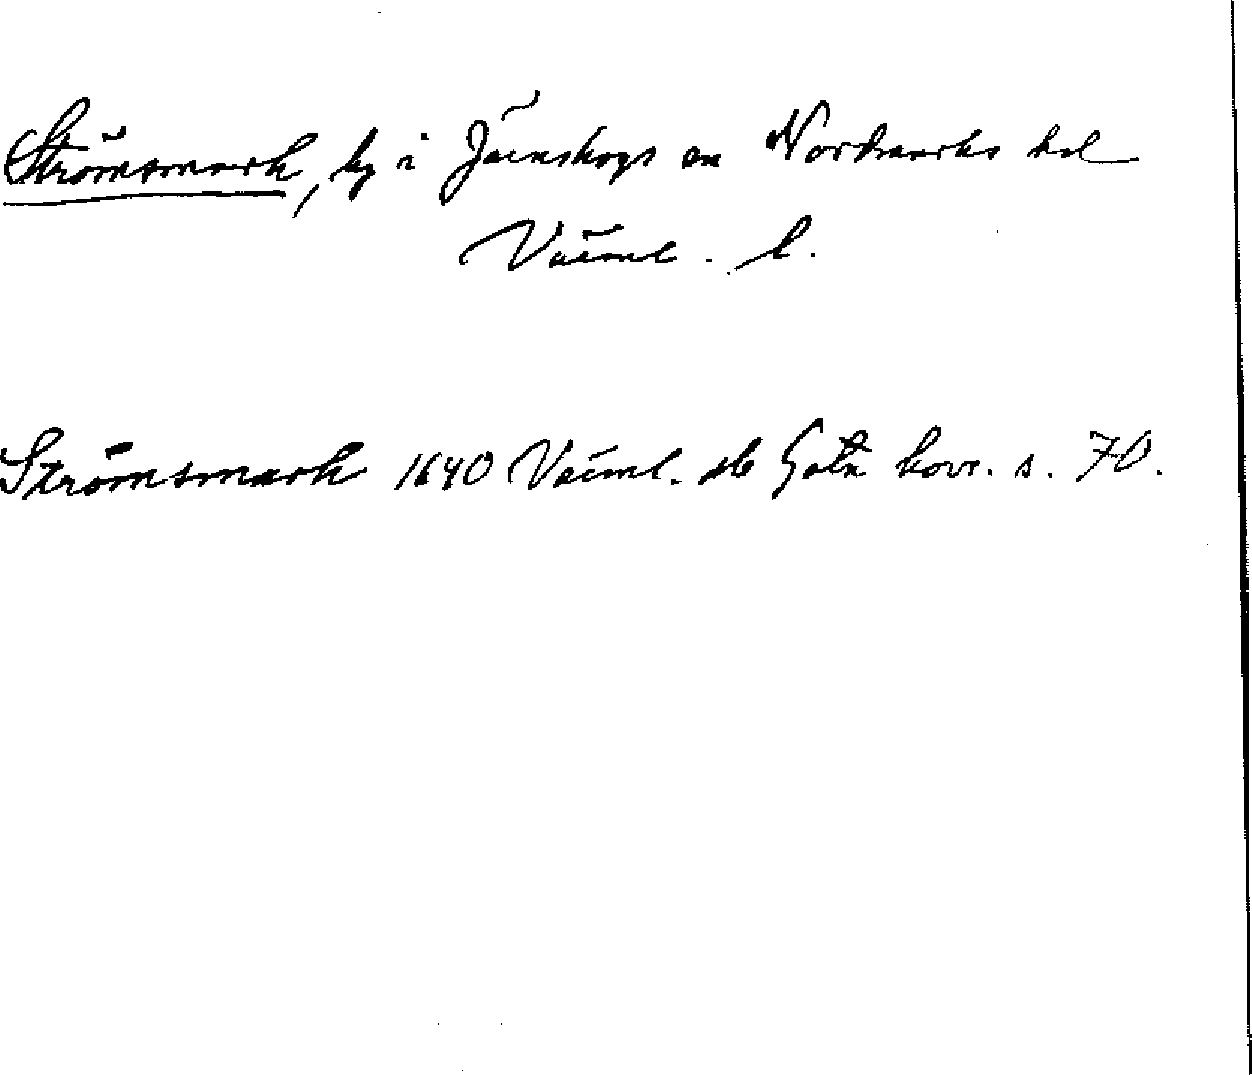 Strömsmark, by i Järnskogs sn Nordmarks hd
Värml. l.
Strömsmark 1640 Värml. db Göta hovr. s. 70.